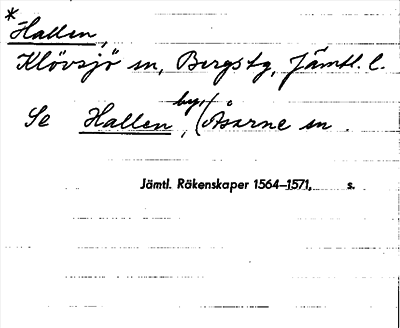 * Hallen,
Klövsjö sn, Bergs tg, Jämtl. l.
Se Hallen, by, (Åsarne sn.
Jämtl. Räkenskaper 1564–1571, s.